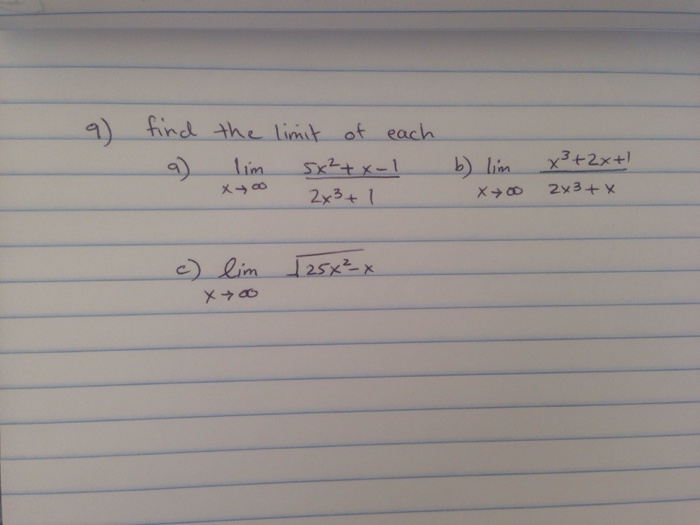 9) find the limit of each
a) lim x→∞ (5x²+x-1)/(2x³+1) b) lim x→∞ (x³+2x+1)/(2x3+x)
c) lim x→∞ √25x²-x